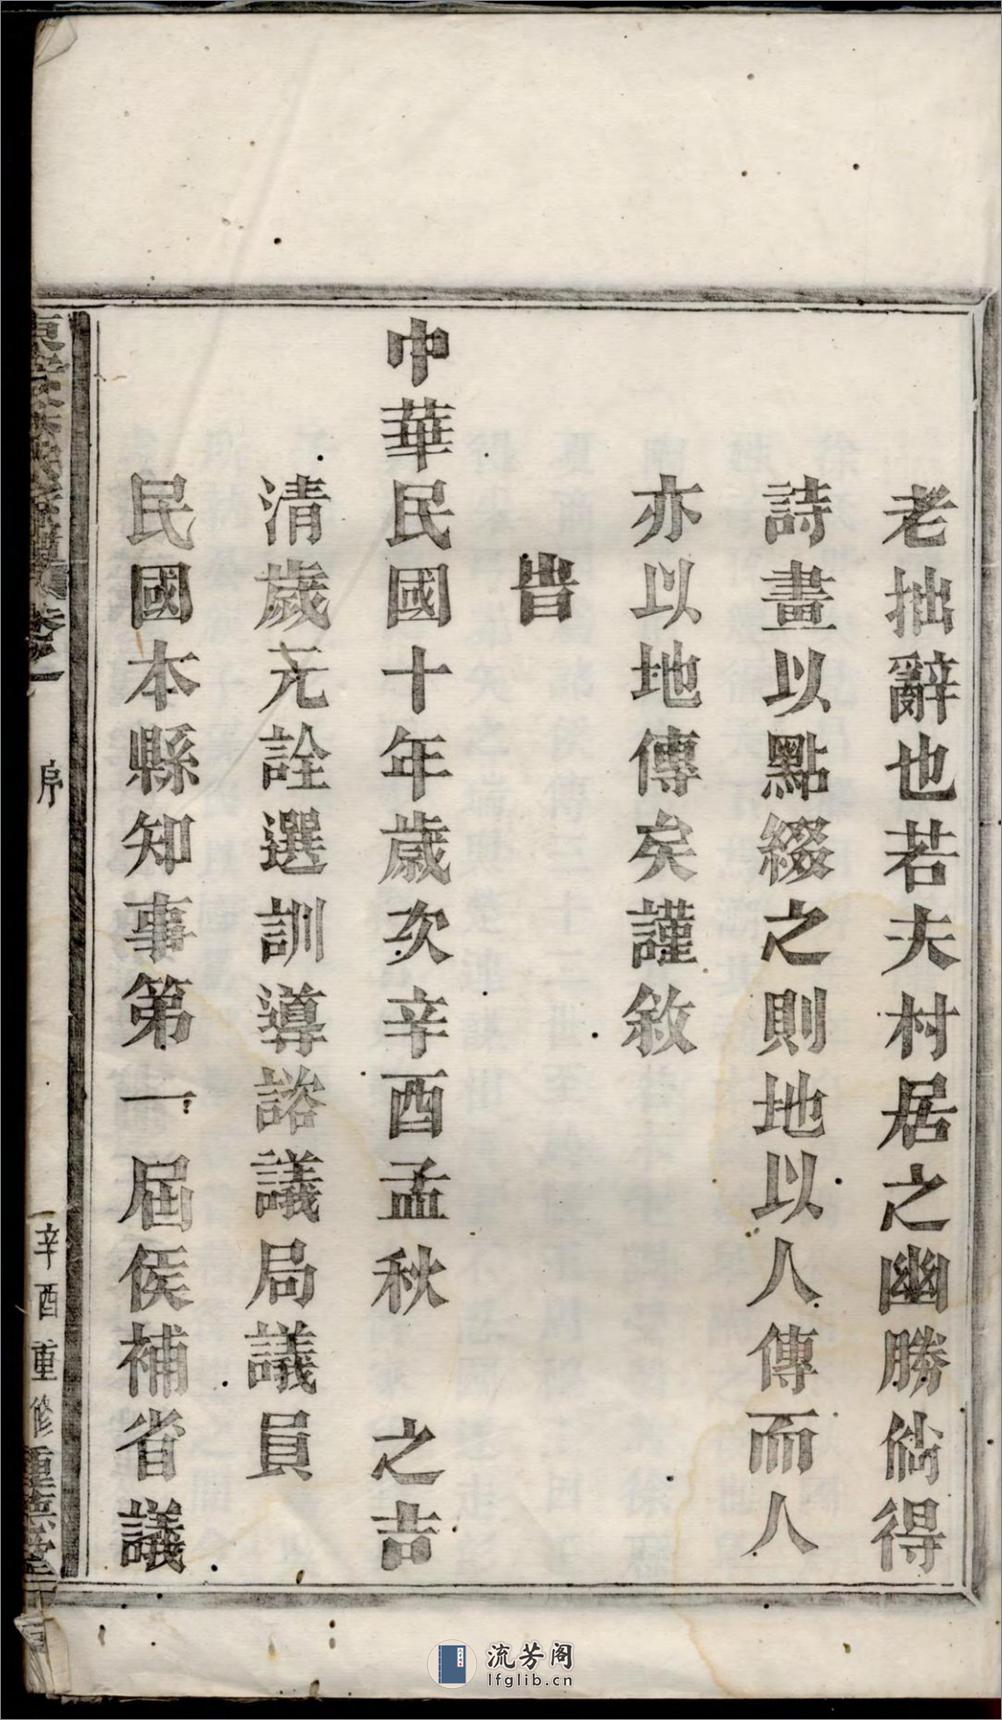 老拙辭也若夫村居之幽勝倘得
詩畫以點綴之則地以人傳而人
亦以地傳矣謹敘
旹
中華民國十年歲次辛酉孟秋　之吉
清歲元詮選訓導諮議局議員
民國本縣知事第一屆侯補省議
卷一　序　辛酉重修
流芳阁
lfglib.cn